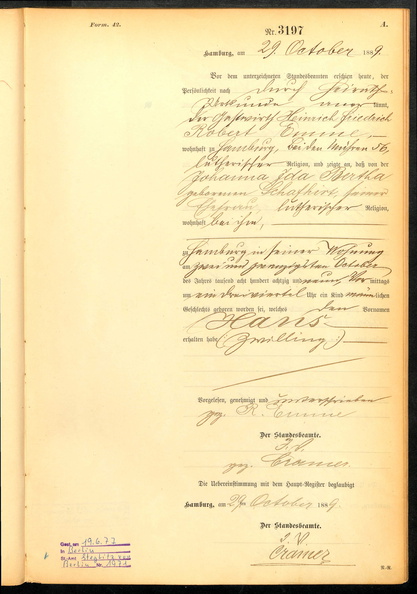 Form. 42.
A.
Nr. 3197
Hamburg, am 29. October 1889.
Vor dem unterzeichneten Standesbeamten erschien heute, der
Persönlichkeit nach durch Heiraths-
Urkunde anerkannt,
der Gastwirth Heinrich Friedrich
Robert Emme,
wohnhaft zu Hamburg, bei den Mühren 56,
lutherischer Religion, und zeigte an, daß von der
Johanna Ida Bertha
geborenen, seiner
Ehefrau, lutherischer Religion,
wohnhaft bei ihm,
zu Hamburg in seiner Wohnung
am zwei und zwanzigsten October
des Jahres tausend acht hundert achtzig und neun Vormittags
um ein drei viertel Uhr ein Kind männlichen
Geschlechts geboren worden sei, welches den Vornamen
Hans
erhalten habe (Zwilling.)
Vorgelesen, genehmigt und unterschrieben
gez. R. Emme
Der Standesbeamte.
J. V.
gez. Cramer
Die Uebereinstimmung mit dem Haupt-Register beglaubigt
Hamburg, am 29. October 1889.
Der Standesbeamte.
J. V.
Cramer
Gest. am 19.6.77
in Berlin
St.Amt Steglitz von
Berlin Nr. 1971